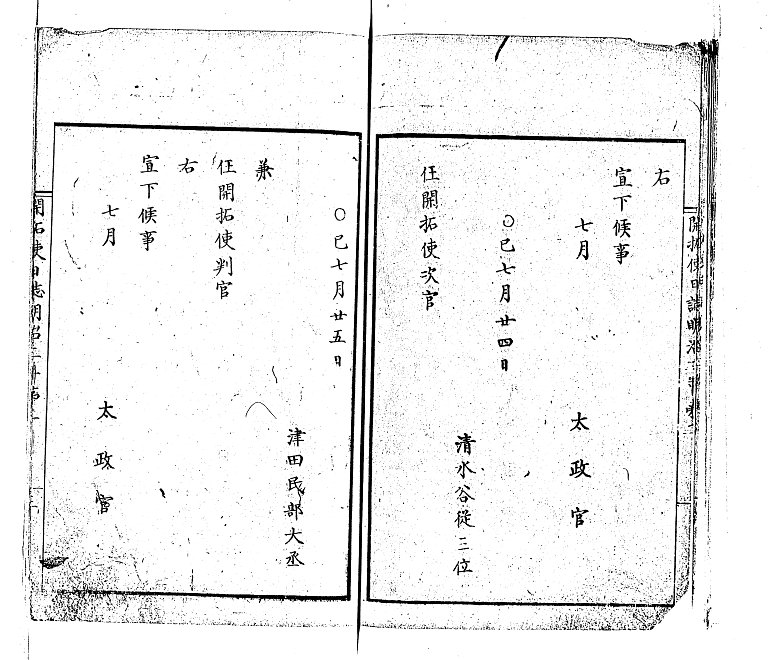 右
宣下候事
七月
太政官
○巳七月廿四日
清水谷從三位
任開拓使次官
○巳七月廿五日
津田民部大丞
兼
任開拓使判官
右
宣下候事
七月
太政官
開拓使日誌明治二
開拓使日誌明治二